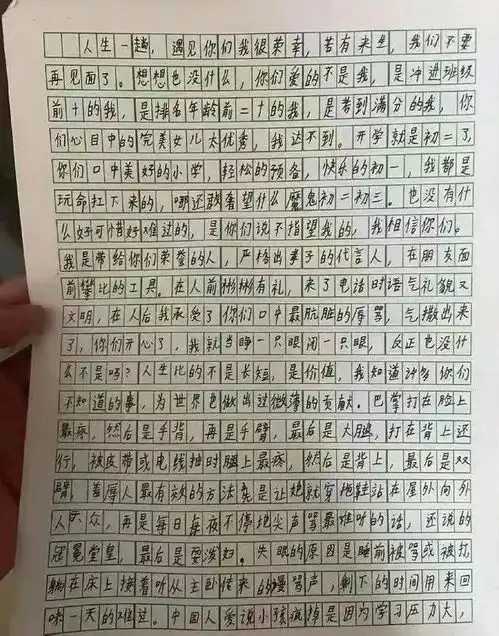 人生一趟，遇见你们我很荣幸，若有来生，我们不要
再见面了。想想也没什么，你们爱的不是我，是冲进班级
前十的我，是排名年龄前二十的我，是考到满分的我，你
们心目中的完美女儿太优秀，我达不到。开学就是初二了，
你们口中美好的小学，轻松的预备，快乐的初一，我都是
玩命扛下来的，哪还敢奢望什么魔鬼初二初三。也没有什
么好可惜好难过的，是你们说不指望我的，我相信你们。
我是带给你们荣誉的人，严格出妻子的代言人，在朋友面
前攀比的工具。在人前彬彬有礼，来了电话时语气礼貌又
文明，在人后我承受了你们口中最肮脏的辱骂，气撒出来
了，你们开心了，我就当睁一只眼闭一只眼，反正也没什
么不是吗？人生比的不是长短，是价值，我知道许多你们
不知道的事，为世界也做出过微薄的贡献。巴掌打在脸上
最疼，然后是手背，再是手臂，最后是大腿，打在背上还
行，被皮带或电线抽时腿上最疼，然后是背上，最后是双
臂，羞辱人最有效的方法先是让她就穿拖鞋站在屋外向外
人示众，再是每日每夜不停地尖声骂最难听的话，还说的
冠冕堂皇，最后是耍泼妇。失眠的原因是睡前被骂或被打，
躺在床上接着听从主卧传来的谩骂声，剩下的时间用来回
味一天的难过。中国人爱说小孩疯掉是因为学习压力大，